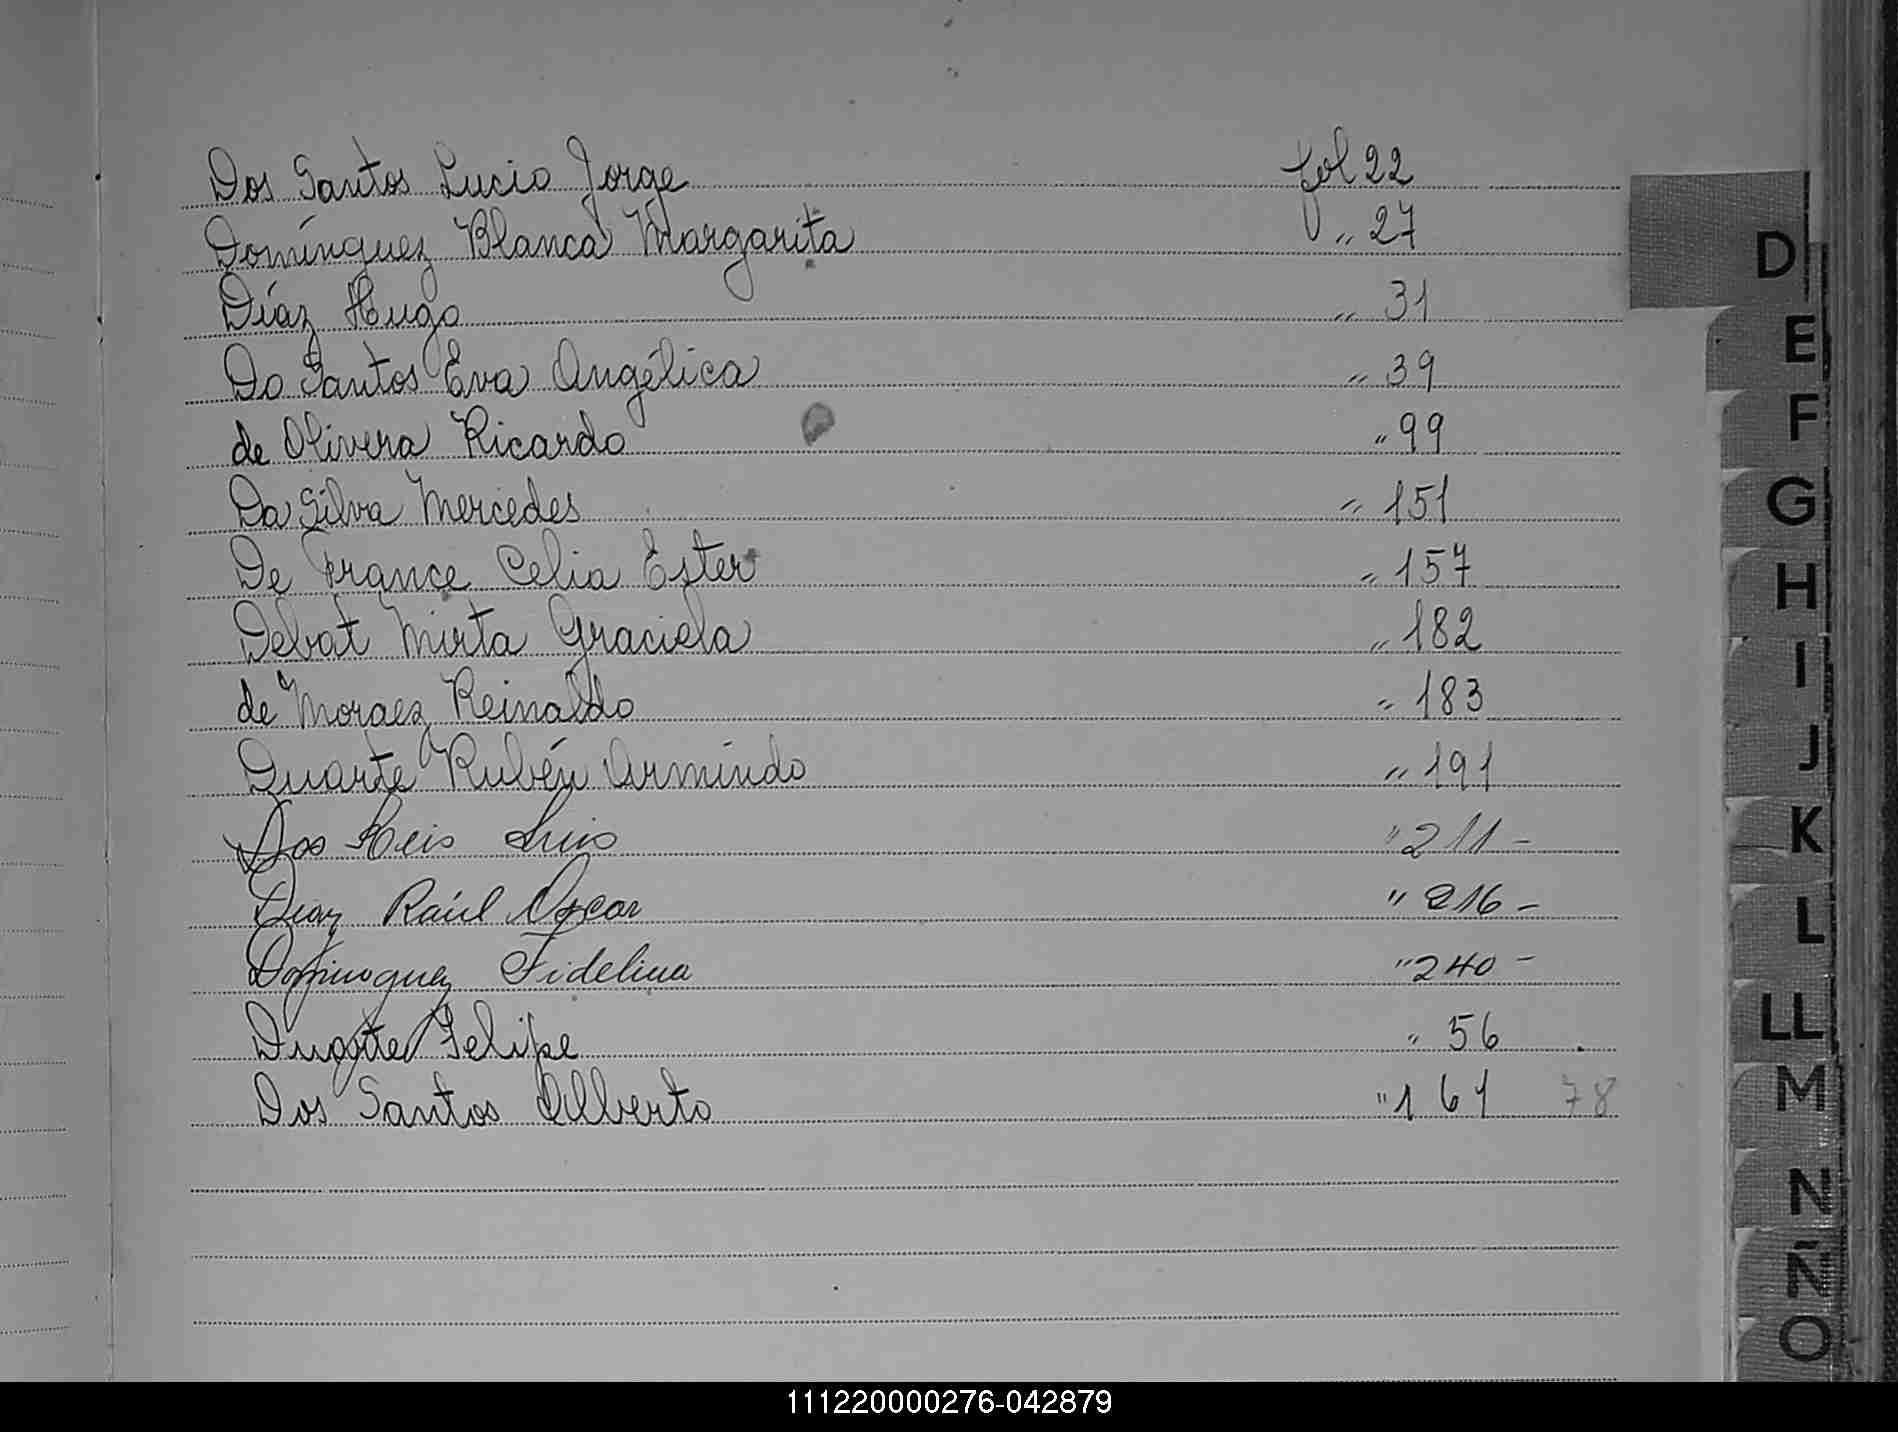 Dos Santos Lucio Jorge fol 22
Domínguez Blanca Margarita " 27
Díaz Hugo " 31
Do Santos Eva Angélica " 39
de Olivera Ricardo " 99
Da Silva Mercedes " 151
De França Celia Ester " 157
Debat Mirta Graciela " 182
de Moraez Reinaldo " 183
Duarte Rubén Armindo " 191
Dos Reis Luis " 211 -
Diaz Raúl Oscar " 216 -
Dominguez Fidelina " 240 -
Duarte Felipe " 56 .
Dos Santos Alberto " 161 78
D
E
F
G
H
I
J
K
L
LL
M
N
Ñ
O
111220000276-042879